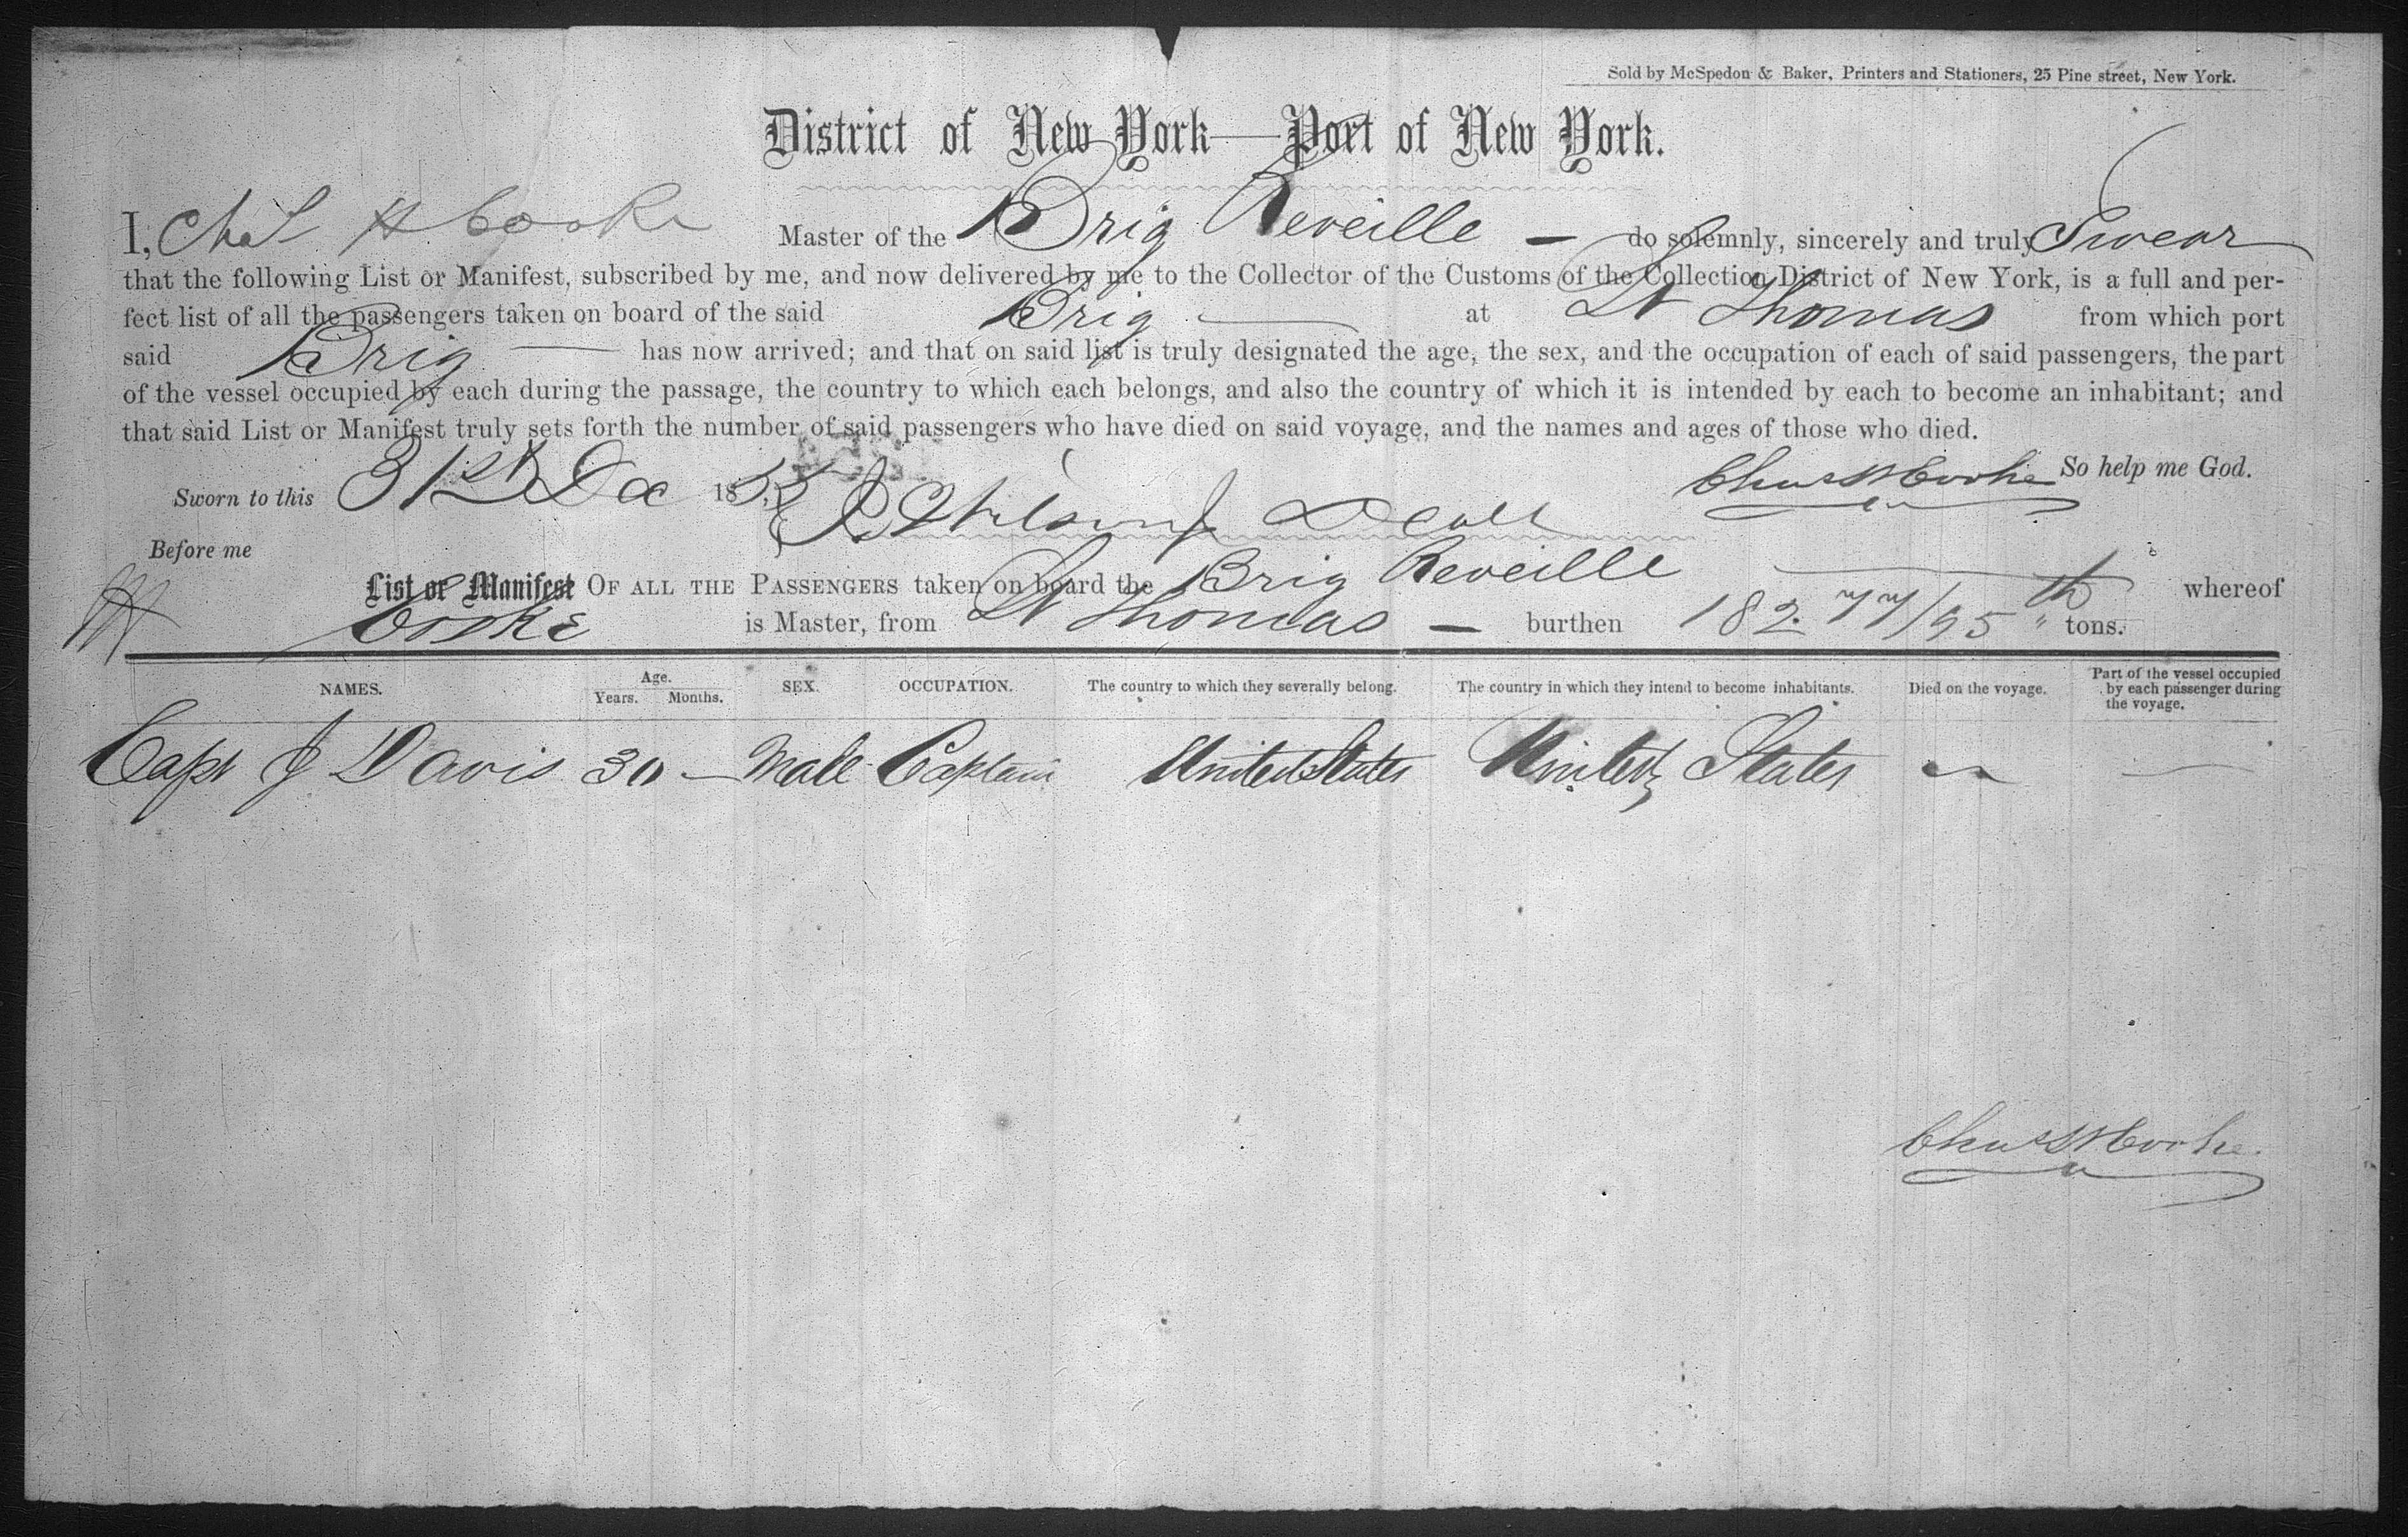 Sold by McSpedon & Baker, Printers and Stationers, 25 Pine street, New York.
District of New York—Port of New York.
I, Chas H Cooke Master of the Brig Reveille — do solemnly, sincerely and truly Swear
that the following List or Manifest, subscribed by me, and now delivered by me to the Collector of the Customs of the Collection District of New York, is a full and per-
fect list of all the passengers taken on board of the said Brig — at St Thomas from which port
said Brig — has now arrived; and that on said list is truly designated the age, the sex, and the occupation of each of said passengers, the part
of the vessel occupied by each during the passage, the country to which each belongs, and also the country of which it is intended by each to become an inhabitant; and
that said List or Manifest truly sets forth the number of said passengers who have died on said voyage, and the names and ages of those who died.
So help me God.
Sworn to this 31st Dec 1855 Chas H Cooke
Before me
List or Manifest OF ALL THE PASSENGERS taken on board the Brig Reveille whereof
Cooke is Master, from St Thomas — burthen 182. 77/95 th tons.
NAMES. Age. Years. Months. SEX. OCCUPATION. The country to which they severally belong. The country in which they intend to become inhabitants. Died on the voyage. Part of the vessel occupied by each passenger during the voyage.
Capt J Davis 30 — Male Captain United States United States — —
Chas H Cooke